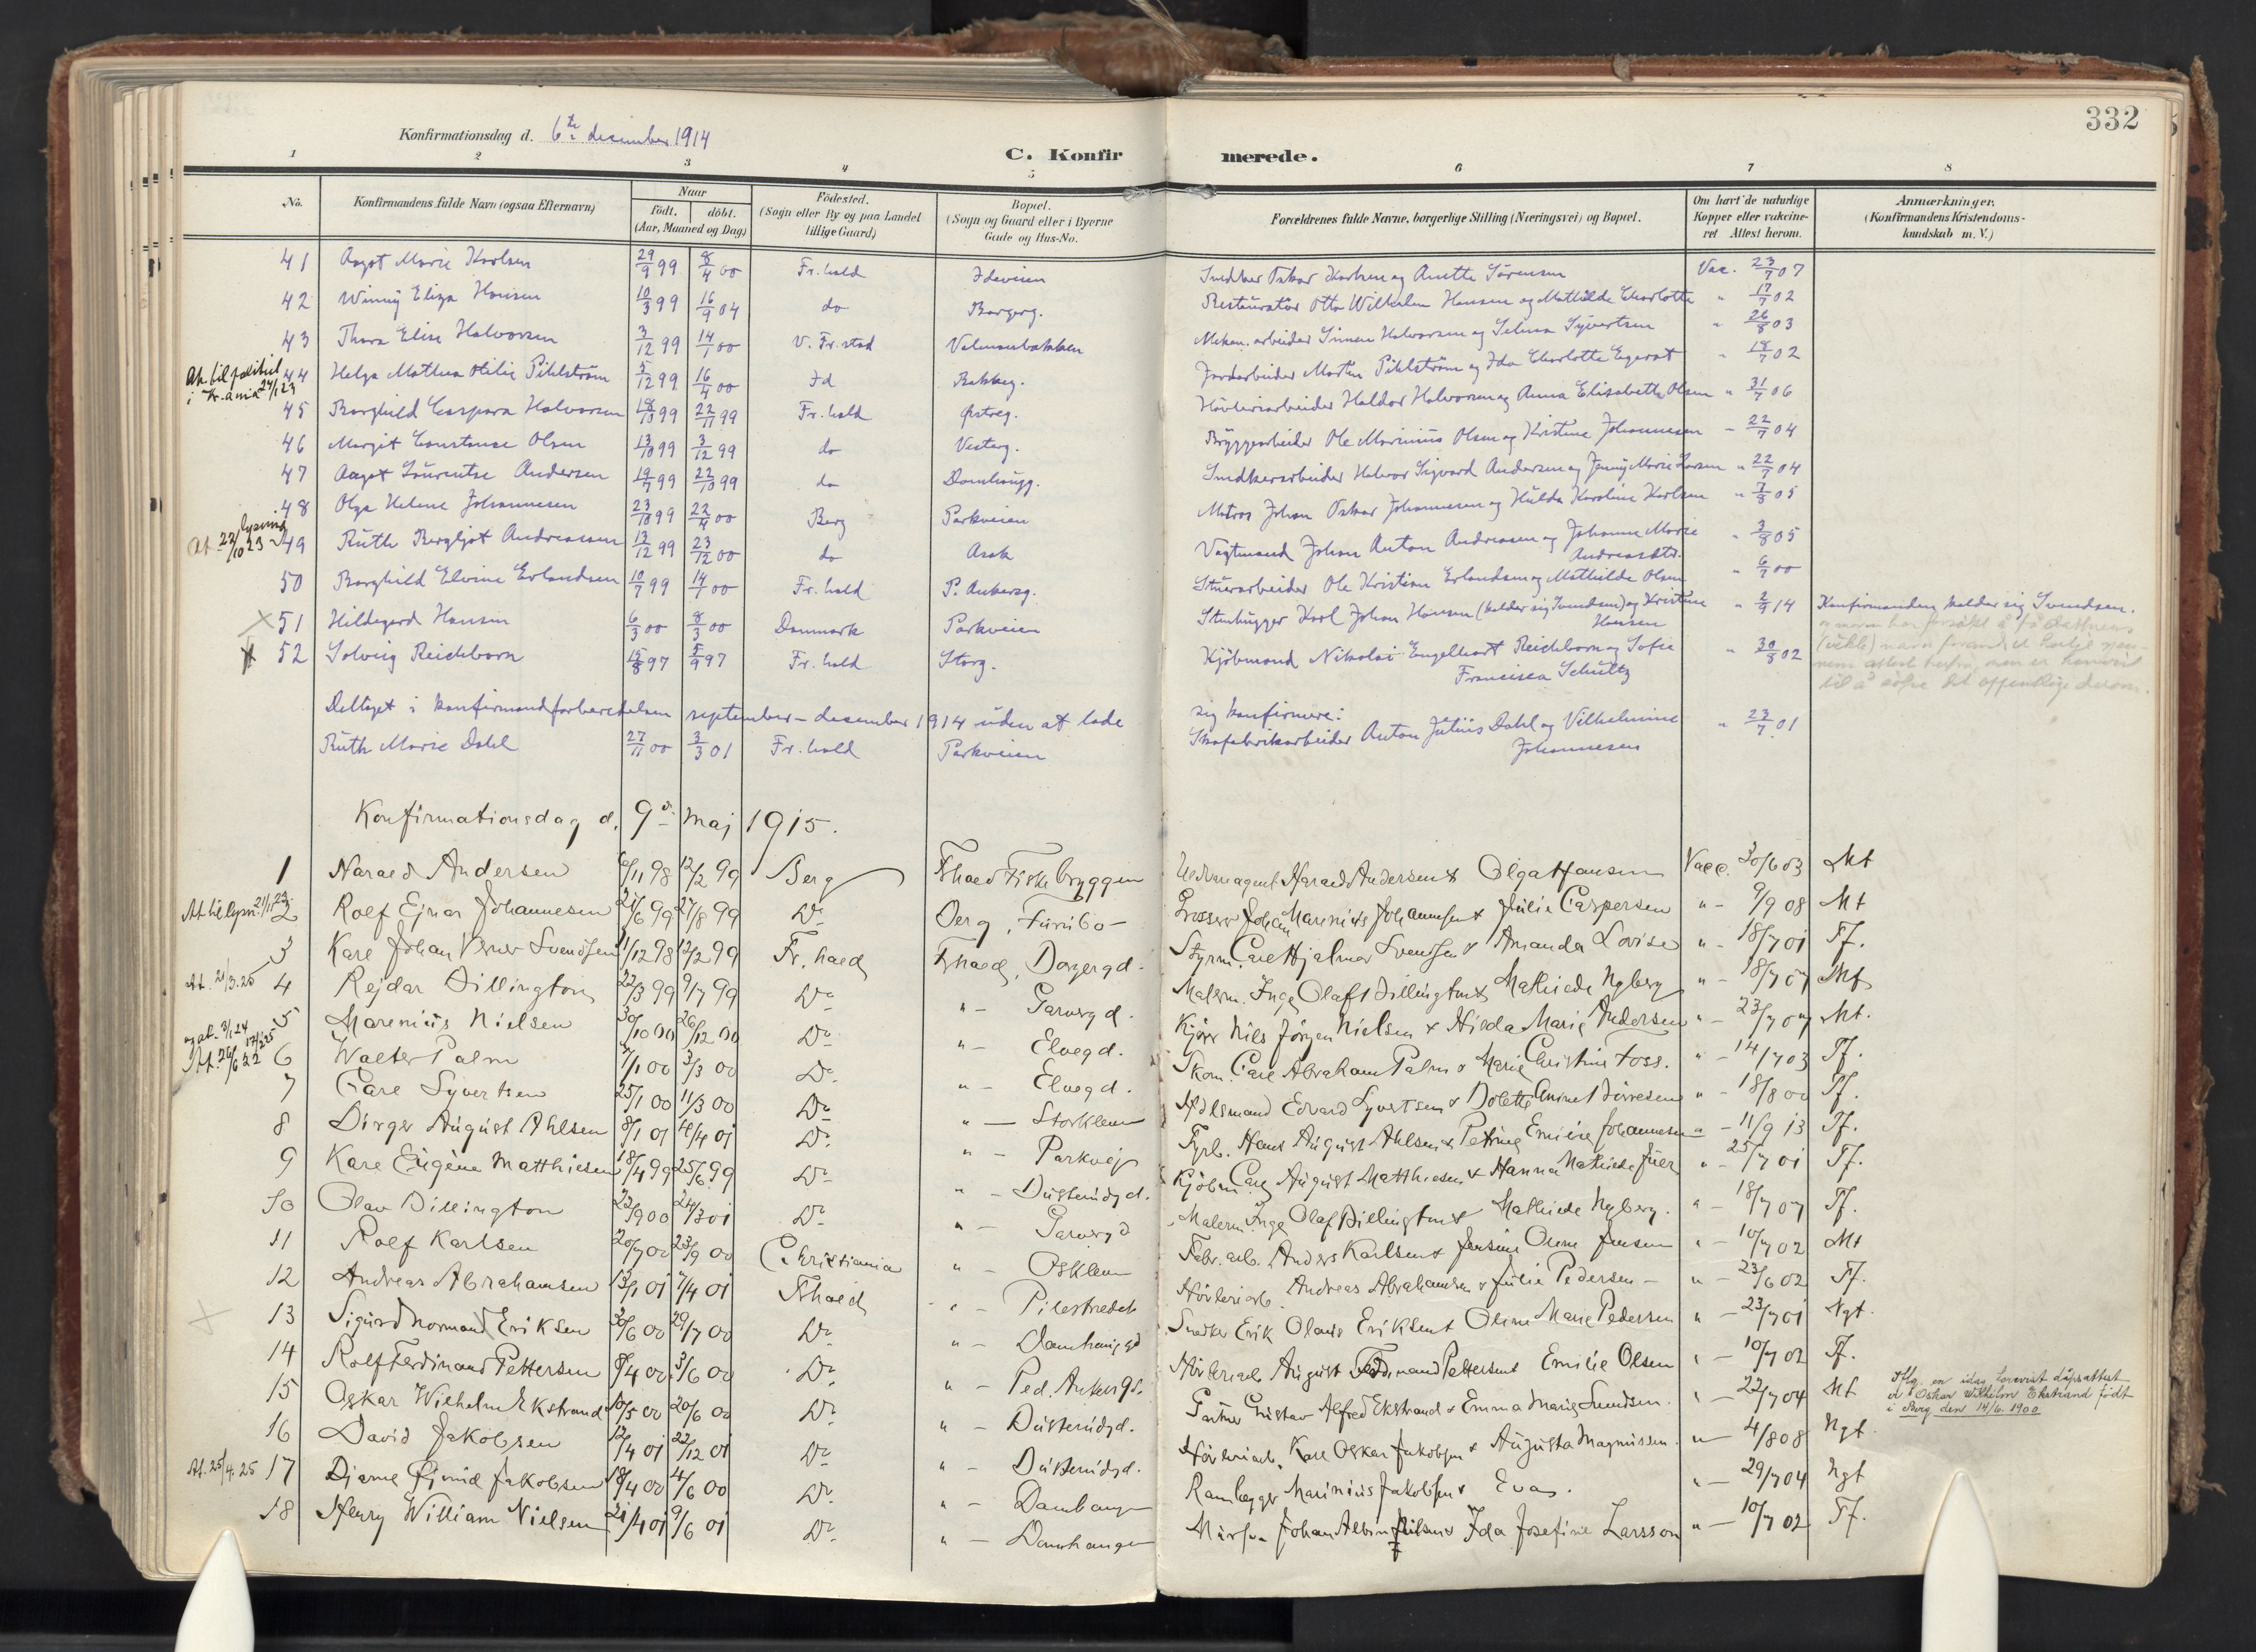 332
Konfirmationsdag d. 6te desember 1914
C. Konfirmerede.
1 2 3 4 5 6 7 8
No. Konfirmandens fulde Navn (ogsaa Efternavn) Naar født, døbt. (Aar, Maaned og Dag) Fødested. (Sogn eller By og paa Landet tillige Gaard) Bopæl. (Sogn og Gaard eller i Byerne Gade og Hus-No. Forældrenes fulde Navne, borgerlige Stilling (Næringsvei) og Bopæl. Om havt de naturlige Kopper eller vakcineret Attest herom. Anmærkninger. (Konfirmandens Kristendomskundskab m. V.)
41 Aagot Marie Karlsen 29/9 99 8/4 00 Fr.hald Ideveien Oskar Karlsen og Anette Sørensen Vac. 23/7 07
42 Winny Eliza Hansen 10/3 99 16/9 04 do Borgerg. Restauratør Otto Wilhelm Hansen og Mathilde Charlotte " 17/7 02
43 Thora Elise Halvorsen 3/12 99 14/1 00 V. Fr.stad Mekan. arbeider Halvorsen og Selma Syvertsen " 26/8 03
44 Helga Mathea Otilie Pihlstrøm 5/12 99 16/4 00 Id Bakkeg. Jordarbeider Martin Pihlström og Ida Charlotte " 18/7 02
45 Borghild Caspara Halvorsen 18/10 99 22/11 99 Fr.hald Østreg. Høvleriarbeider Haldor Halvorsen og Anna Elisabeth Olsen " 31/7 06
46 Margit Constanse Olsen 13/10 99 3/12 99 do Vesterg. Bryggearbeider Ole Marinius Olsen og Kristine Johannesen " 22/7 04
47 Aagot Laurentse Andersen 19/7 99 22/10 99 do Damhaugg. Halvor Sigvard Andersen og Jenny Marie Larsen " 22/7 04
48 Olga Helene Johannesen 23/10 99 22/4 00 Berg Parkveien Matros Johan Oskar Johannesen og Hulda Karoline Karlsen " 7/8 05
49 Ruth Bergljot Andreassen 13/12 99 23/12 00 do Asak Vagtmand Johan Anton Andreasen og Johanne Marie Andreasdtr. " 3/8 05
50 Borghild Elvine Erlandsen 10/7 99 14/1 00 Fr.hald P. Ankersg. Ole Kristian Erlandsen og Mathilde Olsen " 6/7 00
51 Hildegard Hansen 6/3 00 8/3 00 Danmark Parkveien Stenhugger Karl Johan Hansen (kalder sig Svendsen) og Kristine Hansen " 2/9 14 Konfirmanden kalder sig Svendsen.
52 Solveig Reichborn 15/8 97 5/9 97 Fr.hald Storg. Kjøbmand Nikolai Engelhart Reichborn og Sofie Francisca Schultz " 30/8 02
Deltaget i konfirmandforberedelsen september – desember 1914 uden at lade sig konfirmere:
Ruth Marie Dahl 27/11 00 3/3 01 Fr.hald Parkveien Skofabrikarbeider Anton Julius Dahl og Vilhelmine Johannesen " 23/7 01
Konfirmationsdag d. 9de Maj 1915.
1 Andersen 6/11 98 12/2 99 Berg Fhald Fiskebryggen Andersen & Olga Hansen Vacc. 30/6 03 Mt
2 Rolf Ejnar Johannesen 21/6 99 27/8 99 Do Berg, Furubo Grosser Johan Marenius Johannesen & Julie Caspersen " 9/9 08 Mt
3 Karl Johan Verner Svendsen 11/12 98 12/2 99 Fr.hald Fhald, Borgergd. Styrm. Carl Hjalmar Svendsen & Amanda Lovise " 18/7 01 Tf.
At. 21/3.25 4 Rejdar Dillington 22/3 99 9/7 99 Do " Garvergd. Malerm. Inge Olaf Dillington & Mathilde Nyberg " 18/7 07 Mt
5 Marenius Nielsen 30/10 00 26/12 00 Do " Elvegd. Kjører Nils Jørgen Nielsen & Hilda Marie Andersen " 23/7 07 Mt.
6 Walter Palm 7/1 00 3/3 00 Do " Elvegd. Skom. Carl Abraham Palm & Marie Christine Foss. " 14/7 03 Tf.
7 Carl Syvertsen 25/1 00 11/3 00 Do " Storklem Edvard Syvertsen & " 18/8 00 Tf.
8 Birger August Ahlsen 8/1 01 4/4 01 Do " Parkvej Fyrb. Hans August Ahlsen & Petrine Emilie Johannesen " 11/9 13 Tf.
9 Karl Eugène Matthiesen 18/4 99 25/6 99 Do " Kjøbm. Carl August Matthiesen & Hanna Mathilde Juel " 25/7 01 Tf.
10 Olav Dillington 22/9 00 24/3 01 Do " Garvergd Malerm. Inge Olaf Dillington & Mathilde Nyberg. " 18/7 07 Tf.
11 Rolf Karlsen 20/7 00 23/9 00 Christiania " Osklem Fabr. arb. Anders Karlsen & Jensine Oline Jensen " 10/7 02 Mt
12 Andreas Abrahamsen 13/1 01 7/4 01 Fhald " Pilestrædet Høvleriarb. Andreas Abrahamsen & Julie Pedersen " 23/6 02 Tf.
13 Sigurd Normand Eriksen 30/6 00 29/7 00 Do " Damhauggd Snedker Erik Olaus Eriksen & Oline Marie Pedersen " 23/7 01 Ngt.
14 Rolf Ferdinand Pettersen 8/4 00 3/6 00 Do " Ped. Ankergd. Høvleriarb. August Ferdinand Pettersen & Emilie Olsen " 10/7 02 Tf.
15 Oskar Wilhelm Ekstrand 10/5 00 20/6 00 Do " Gartner Gustav Alfred Ekstrand & Emma Marie Svendsen. " 22/7 04 Mt Iflg. en idag forevist dåpsattest er Oskar Wilhelm Ekstrand født i Berg den 14/6. 1900
16 David Jakobsen 12/4 01 22/12 01 Do " Høvleriarb. Karl Oskar Jakobsen & Augusta Magnussen. " 4/8 08 Ngt
At. 25/4.25 17 Bjarne Jakobsen 18/4 00 4/6 00 Do " Damhaugen Marinius Jakobsen & Eva. " 29/7 04 Ngt
18 Henry William Nielsen 21/4 01 9/6 01 Do " Damhaugen Johan Albin Nilsen & Ida Josefine Larsson " 10/7 02 Tf.